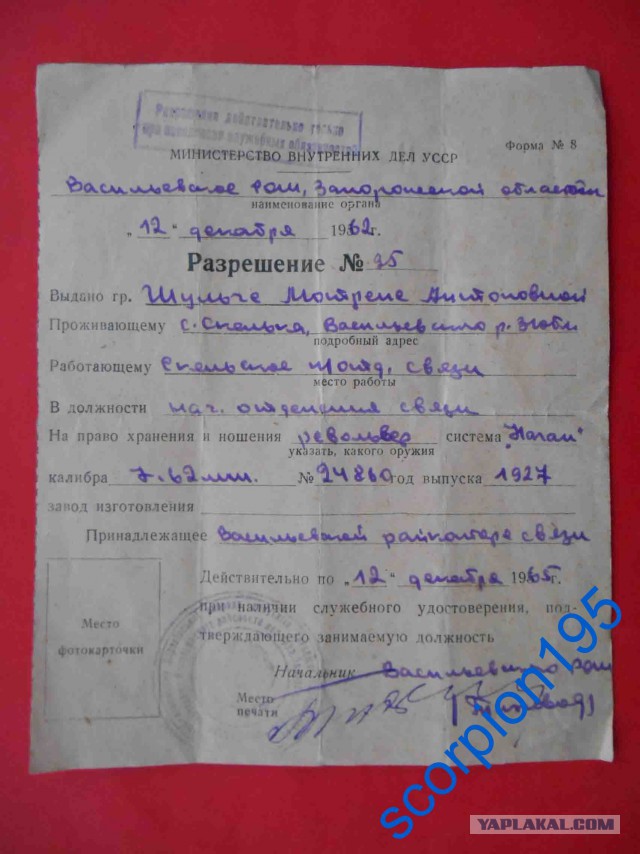 Разрешение действительно только
при исполнении служебных обязанностей
Форма № 8
МИНИСТЕРСТВО ВНУТРЕННИХ ДЕЛ УССР
Васильевское РОМ, Запорожской области
наименование органа
„12" декабря 1962г.
Разрешение № 95
Выдано гр. Шульге Мотрене Антоновной
Проживающему с. Скелька, Васильевского р. З/обл
подробный адрес
Работающему Скельское отд, связи
место работы
В должности нач. отделения связи
На право хранения и ношения револьвер система "Наган"
указать, какого оружия
калибра 7.62мм. № 24860 год выпуска 1927
завод изготовления
Принадлежащее Васильевской райконторе связи
Действительно по „12" декабря 1965г.
при наличии служебного удостоверения, под-
тверждающего занимаемую должность
Место
фотокарточки
Начальник Васильевского РОМ
Место
печати
scorpion195
YAPLAKAL.COM